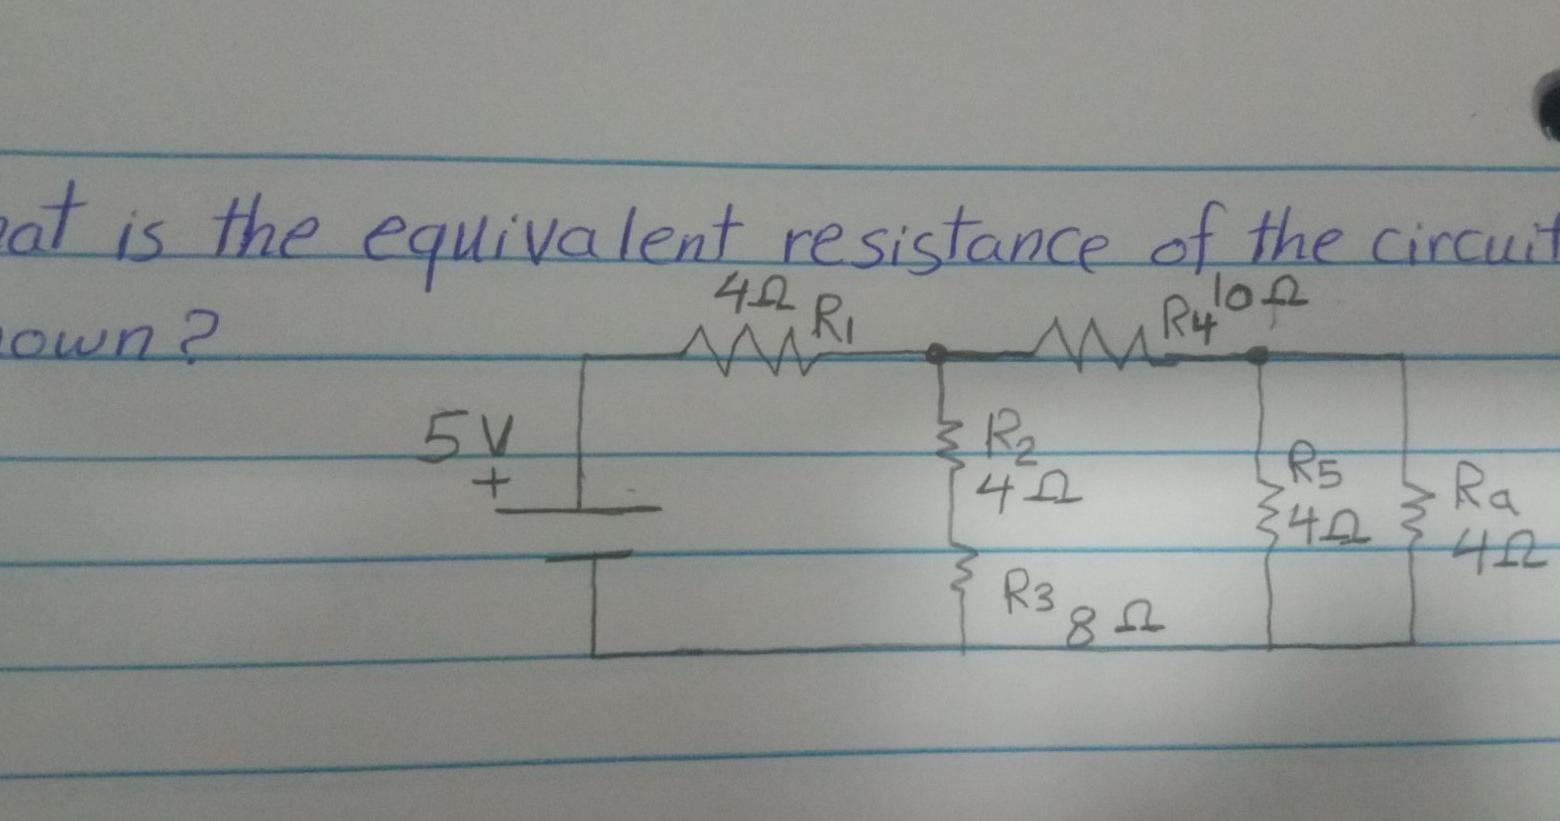 is the equivalent resistance of the circuit
4Ω R1 R4 10Ω
own?
5V
+
R2
4Ω
R5
4Ω
Ra
4Ω
R3 8Ω